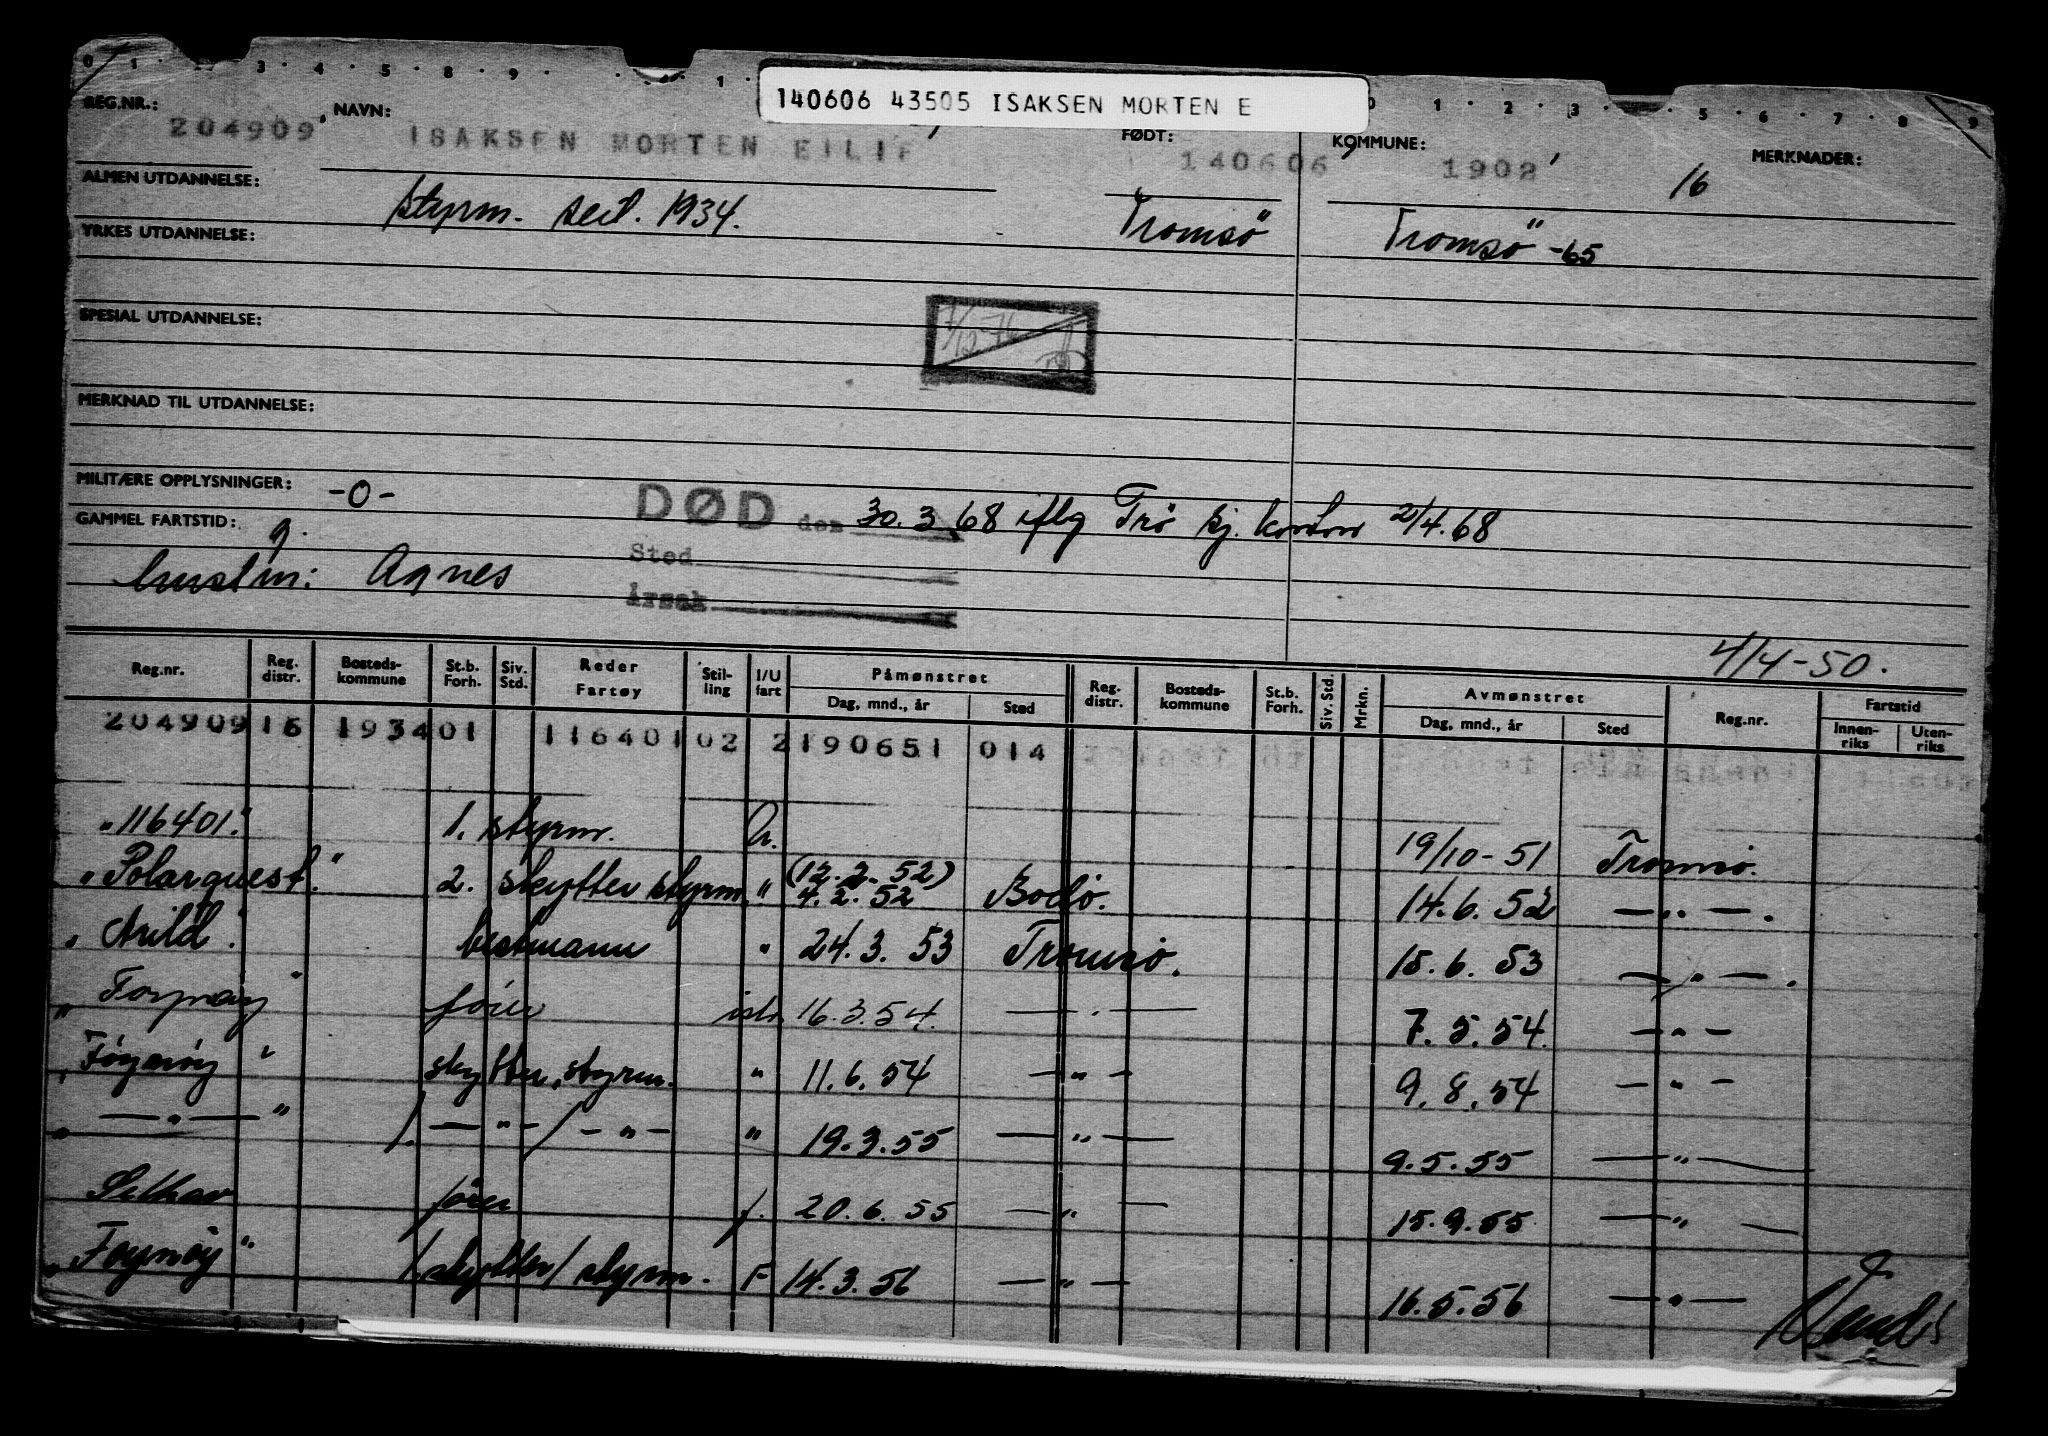 0 1 3 4 5 8 9 1 0 1 2 3 5 6 7 8 9
140606 43505 ISAKSEN MORTEN E
REG.NR.: NAVN: FØDT: KOMMUNE: MERKNADER:
204909 ISAKSEN MORTEN EILIF 140606 1902 16
ALMEN UTDANNELSE: styrm. seil. 1934. Tromsö Tromsö -65
YRKES UTDANNELSE:
SPESIAL UTDANNELSE:
MERKNAD TIL UTDANNELSE:
MILITÆRE OPPLYSNINGER: -0-
DØD den 30.3 68 iflg Trö sj. kontor 2/4.68
GAMMEL FARTSTID:
Sted
hustru: Agnes
Årsak
4/4-50.
Reg.nr. Reg. distr. Bosteds-kommune St.b. Forh. Siv. Std. Reder Fartøy Stil-ling I/U fart Påmønstret Dag, mnd., år Sted Reg. distr. Bosteds-kommune St.b. Forh. Siv. Std. Mrkn. Avmønstret Dag, mnd., år Sted Reg.nr. Fartstid Innen-riks Uten-riks
204909 16 1934 01 116401 02 2 190651 014
"116401." 1. styrm. 19/10-51 Tromsø.
"Polarquest." 2. skytter styrm. " (12.2.52) 4.2.52 Bodø. 14.6.52 —"—.
"Arild." bestmann " 24.3.53 Tromsø. 15.6.53 —"—.
" " fører ish. 16.3.54. —"— 7.5.54. —"—
"Föynöy" skytter, styrm. " 11.6.54 —"— 9.8.54 —"—
"—"—" /.—"—/—"— " 19.3.55 —"— 9.5.55 —"—
Selhav fører f. 20.6.55 —"— 15.9.55 —"—
"Foynöy" /skytter/ styrm. F 14.3.56 —"— 16.5.56 —"—